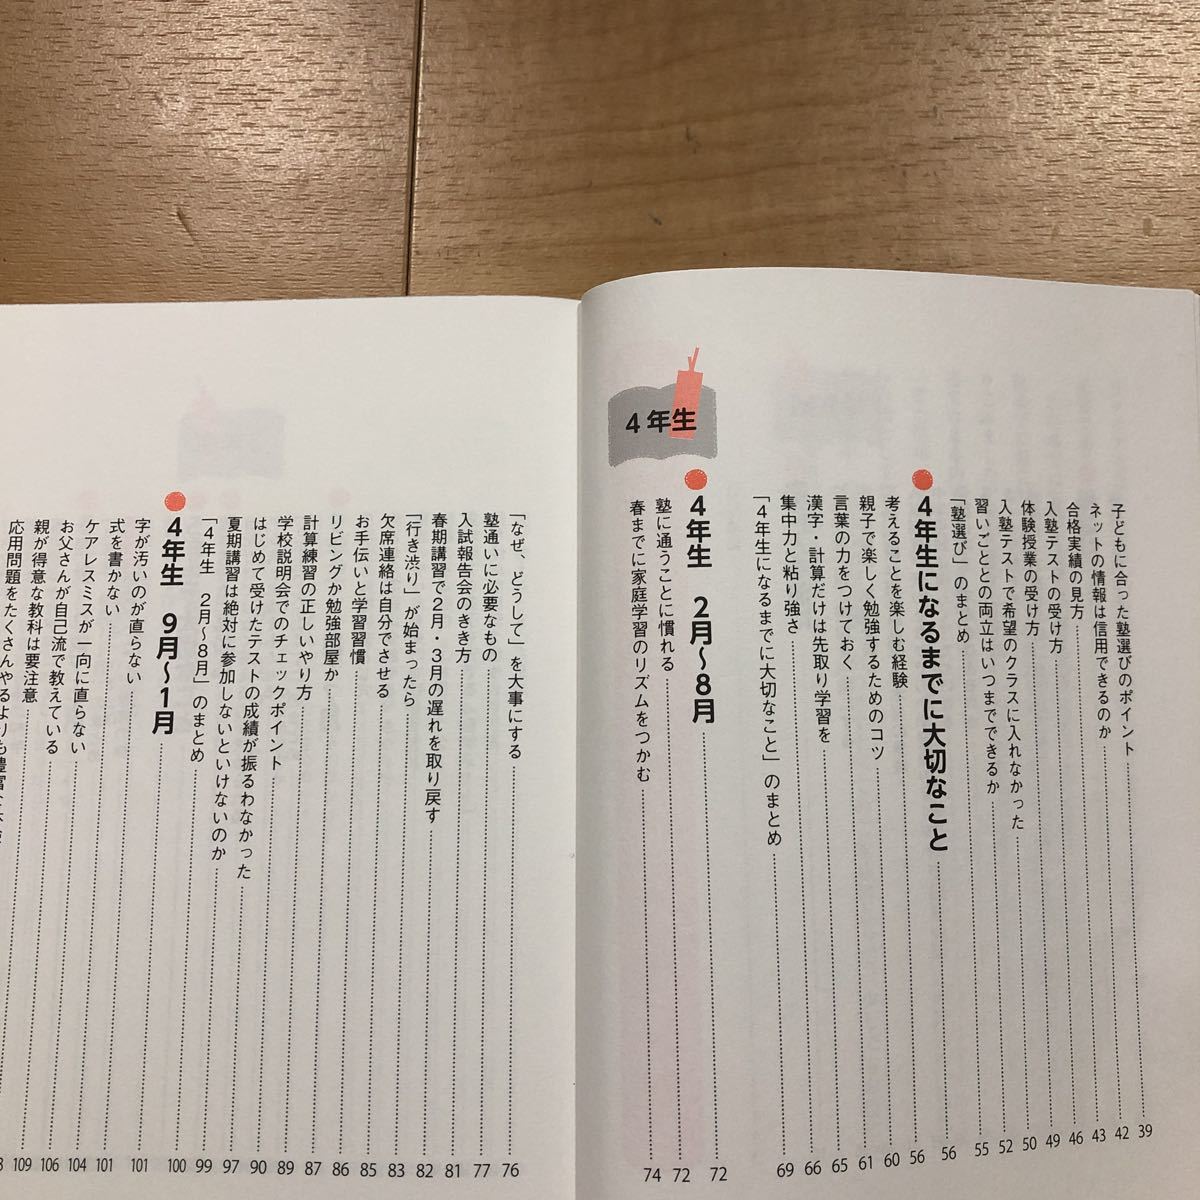 子どもに合った塾選びのポイント 39
ネットの情報は信用できるのか 42
合格実績の見方 43
入塾テストの受け方 46
体験授業の受け方 49
入塾テストで希望のクラスに入れなかった 50
習いごととの両立はいつまでできるか 52
「塾選び」のまとめ 55
4年生になるまでに大切なこと 56
考えることを楽しむ経験 56
親子で楽しく勉強するためのコツ 60
言葉の力をつけておく 61
漢字・計算だけは先取り学習を 65
集中力と粘り強さ 66
「4年生になるまでに大切なこと」のまとめ 69
4年生
4年生 2月〜8月 72
塾に通うことに慣れる 72
春までに家庭学習のリズムをつかむ 74
「なぜ、どうして」を大事にする 76
塾通いに必要なもの 77
入試報告会のきき方 81
春期講習で2月・3月の遅れを取り戻す 82
「行き渋り」が始まったら 83
欠席連絡は自分でさせる 85
お手伝いと学習習慣 86
リビングか勉強部屋か 87
計算練習の正しいやり方 89
学校説明会でのチェックポイント 90
はじめて受けたテストの成績が振るわなかった 97
夏期講習は絶対に参加しないといけないのか 99
「4年生 2月〜8月」のまとめ 100
4年生 9月〜1月 101
字が汚いのが直らない 101
式を書かない 104
ケアレスミスが一向に直らない 106
お父さんが自己流で教えている 109
親が得意な教科は要注意
応用問題をたくさんやるよりも豊富な